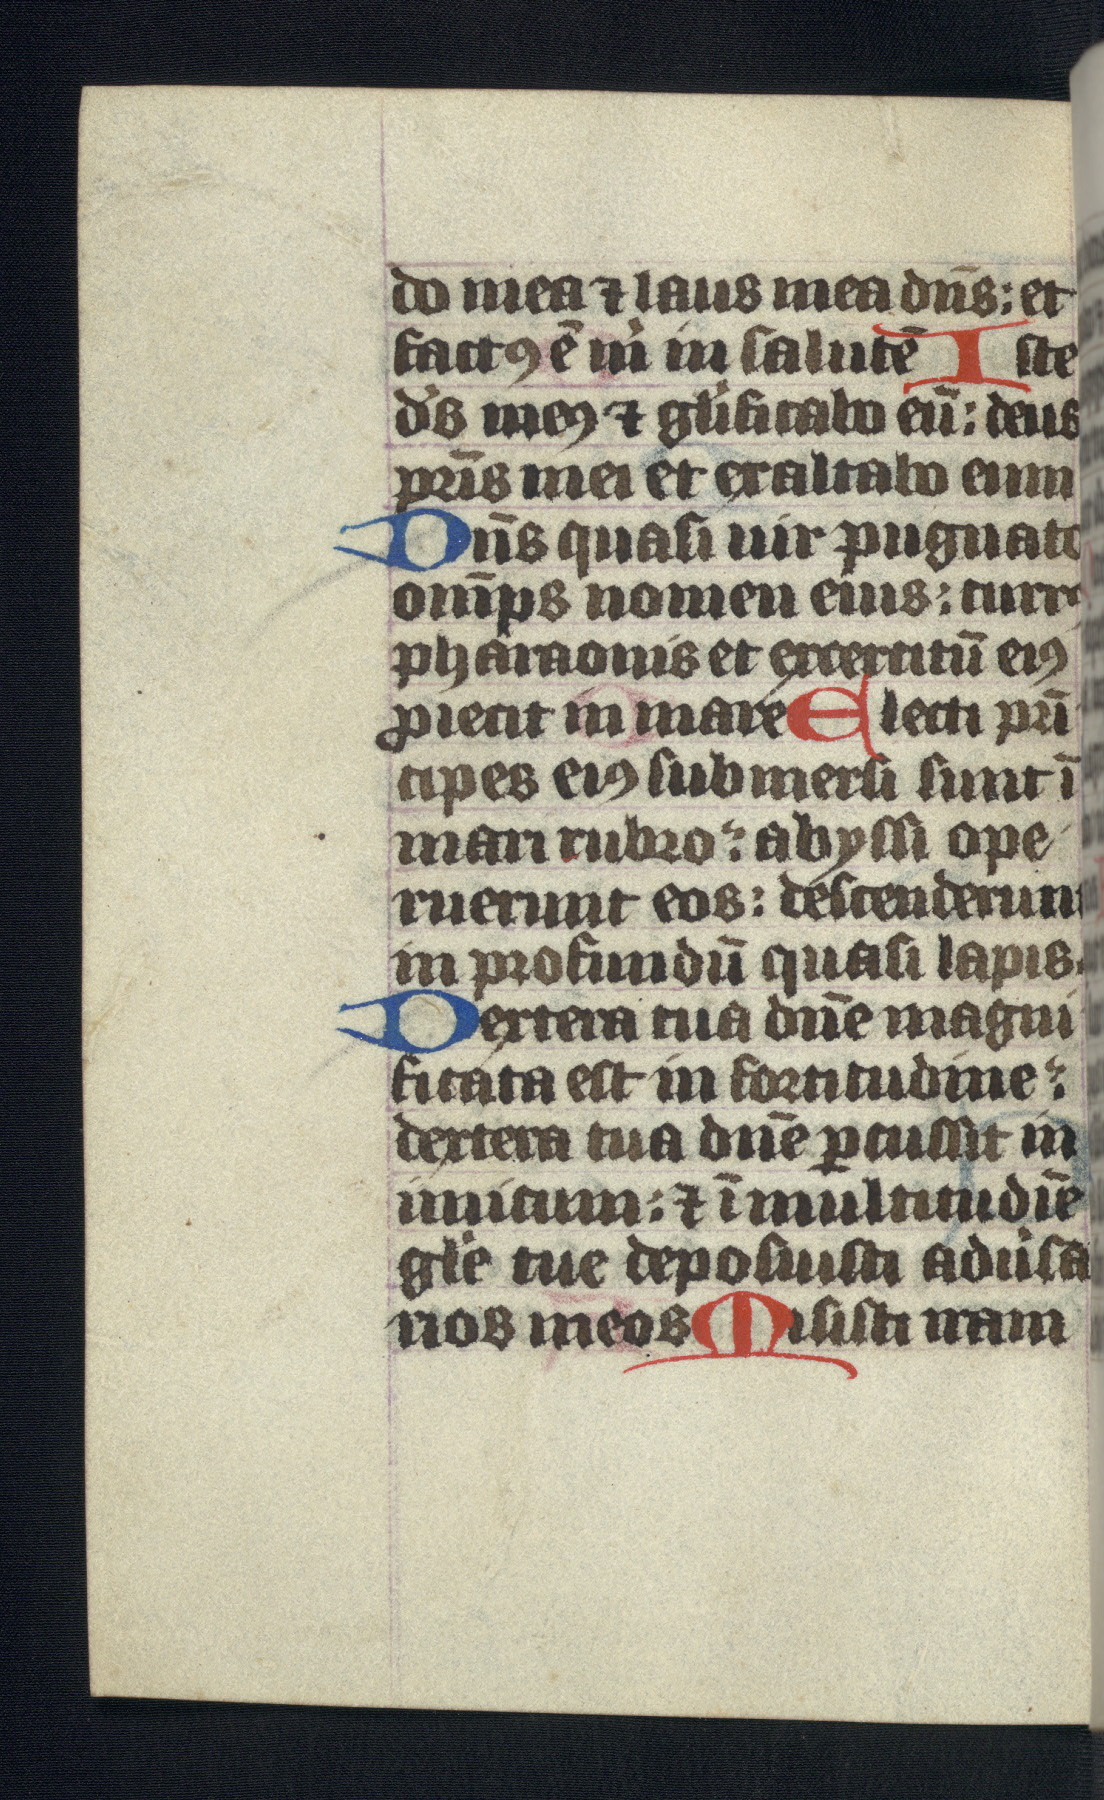 do mea ⁊ laus mea dn̄s: et
factꝯ ē m̍ in salutē Iste
d̍s meꝯ ⁊ gl̍ificabo eū: deus
pr̄is mei et exaltabo eum
Dn̄s quasi uir pugnato
om̄ps nomen eius: curr
pharaonis et excercitū eiꝯ
ꝓiecit in mare Electi pri̅
cipes eiꝯ submersi sunt ī
mari rubro: abyssi ope
ruerunt eos: descenderunt
in profundū quasi lapis.
Dextera tua dn̄e magni
ficata est in fortitudine:
dextera tua dn̄e ꝑcussit in
imicum: ⁊ ī multitudīe
gl̍e tue deposuisti adu̍sa
rios meos Misisti iram